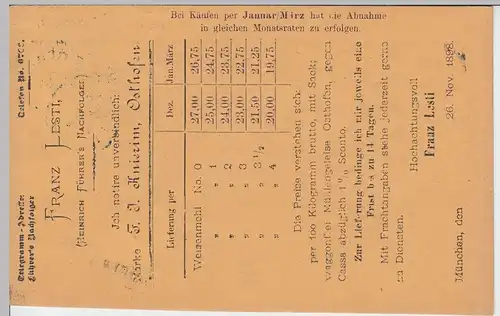 Bei Käufen per Januar/März hat die Abnahme
in gleichen Monatsraten zu erfolgen.
Telegramm-Adresse:
Führer's Nachfolger
Telefon No.
FRANZ LESTI,
(HEINRICH FÜHRER'S NACHFOLGER)
Ich notire unverbindlich:
Marke F. J. Knierim, Osthofen
Lieferung per Dez. Jan./März
Weizenmehl No. 0 27,00 26,75
" " 1 25,00 24,75
" " 2 24,00 23,75
" " 3 23,00 22,75
" " 3 1/2 21,50 21,25
" " 4 20,00 19,75
Die Preise verstehen sich:
per 100 Kilogramm brutto, mit Sack;
waggonfrei Mühlengeleise Osthofen, gegen
Cassa abzüglich 1% Sconto.
Zur Lieferung bedinge ich mir jeweils eine
Frist bis zu 14 Tagen.
Mit Frachtangaben stehe jederzeit gerne
zu Diensten.
Hochachtungsvoll
Franz Lesti
München, den 26. Nov. 1898.